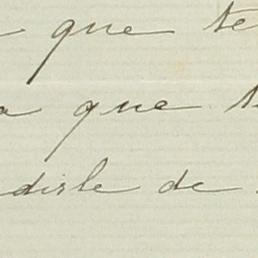 que te
a que t
disle de